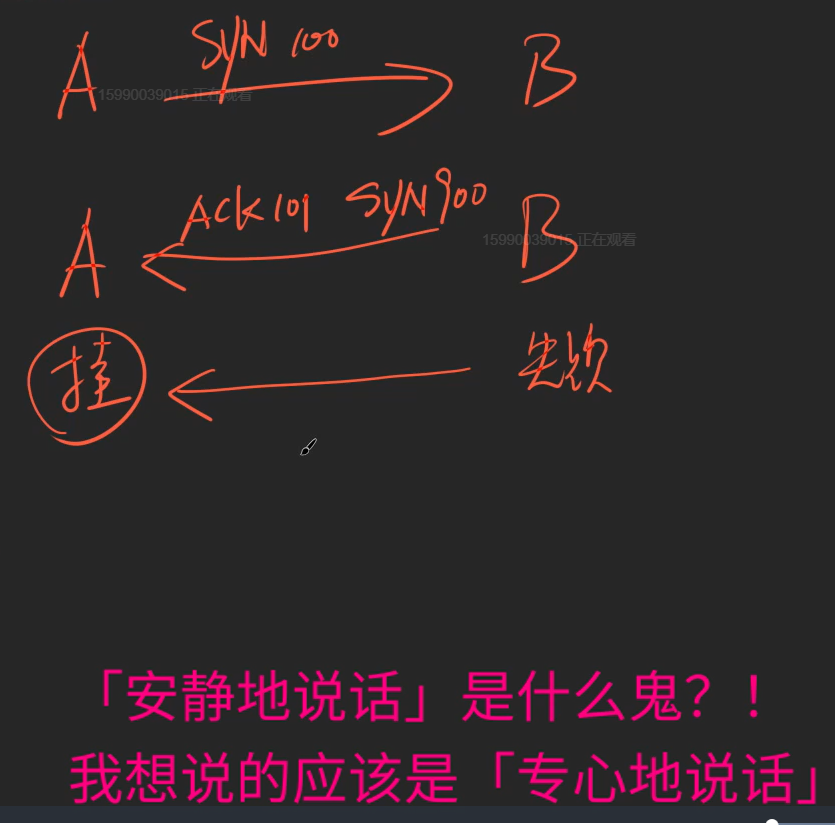 A SYN 100 B
15990039015 正在观看
A ACK 101 SYN 900 B
15990039015 正在观看
挂
「安静地说话」是什么鬼？！
我想说的应该是「专心地说话」